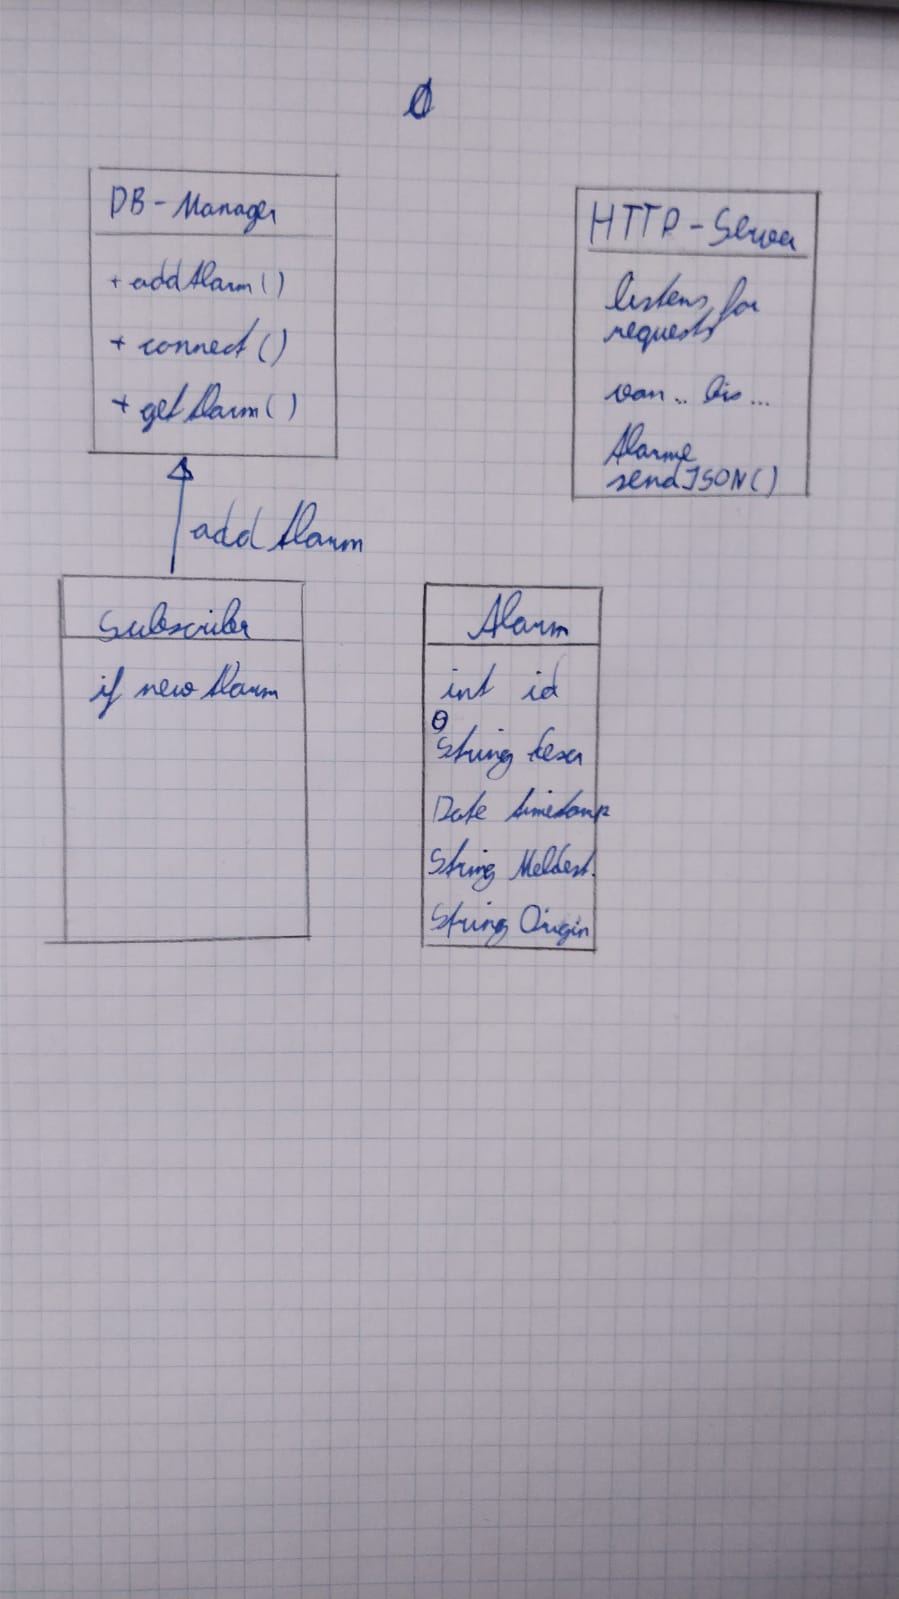 DB-Manager
+ addAlarm()
+ connect()
+ getAlarm()
HTTP-Server
listens for
requests
von .. bis ...
Alarme
sendJSON()
add Alarm
Subscriber
if new Alarm
Alarm
int id
String
Date timestamp
String Meldest.
String Origin